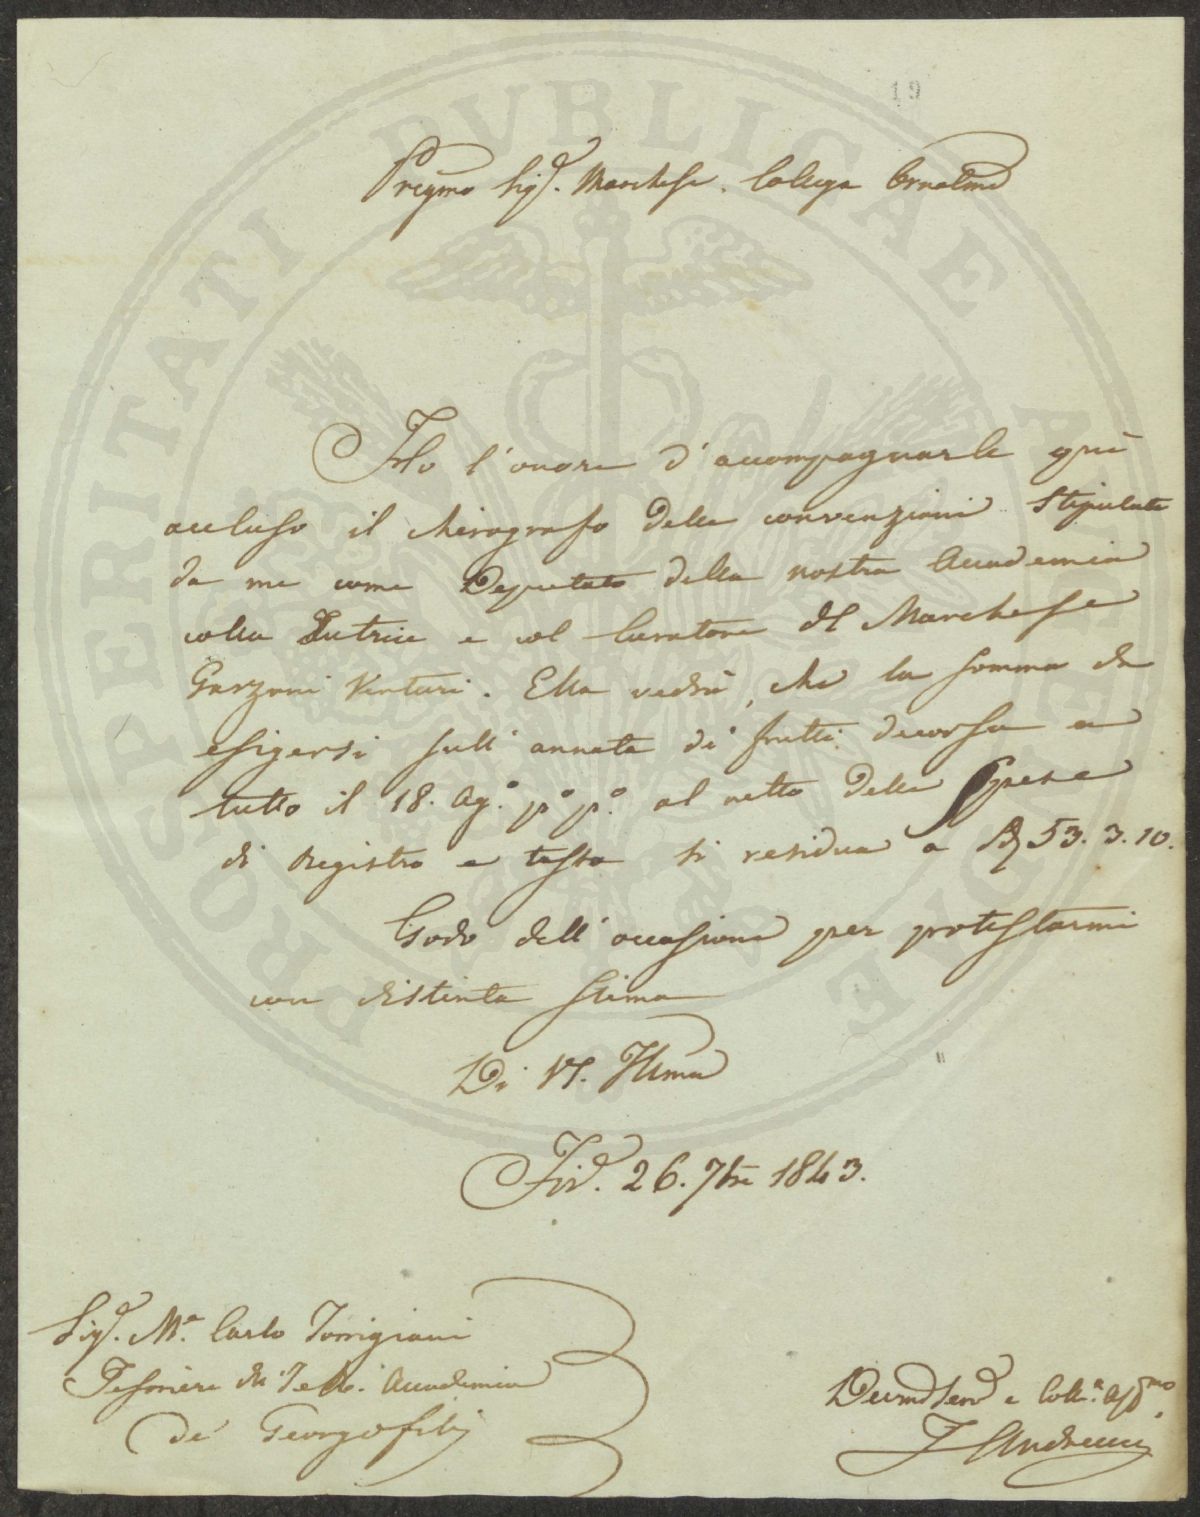 19
PROSPERITATI PUBLICAE AUGENDAE
Pregmo Sigr. Marchese Collega Ornatmo
Ho l'onore d'accompagnarle quì
accluso il chirografo delle convenzioni stipulate
da me come Deputato della nostra Accademia
colla Tutrice e col Curatore del Marchese
Garzoni Venturi. Ella vedrà, che la somma da
esigersi sull'annata di frutti decorsa a
tutto il 18. Ago. po. po. al netto delle spese
di registro e tassa si residua a 53. 3. 10.
Godo dell'occasione per protestarmi
con distinta stima
Di VS. Illma
26. 7bre 1843.
Sigr. Me. Carlo Torrigiani
Tesoriere della Accademia
de' Georgofili
Devmo Serv e Colla. affmo